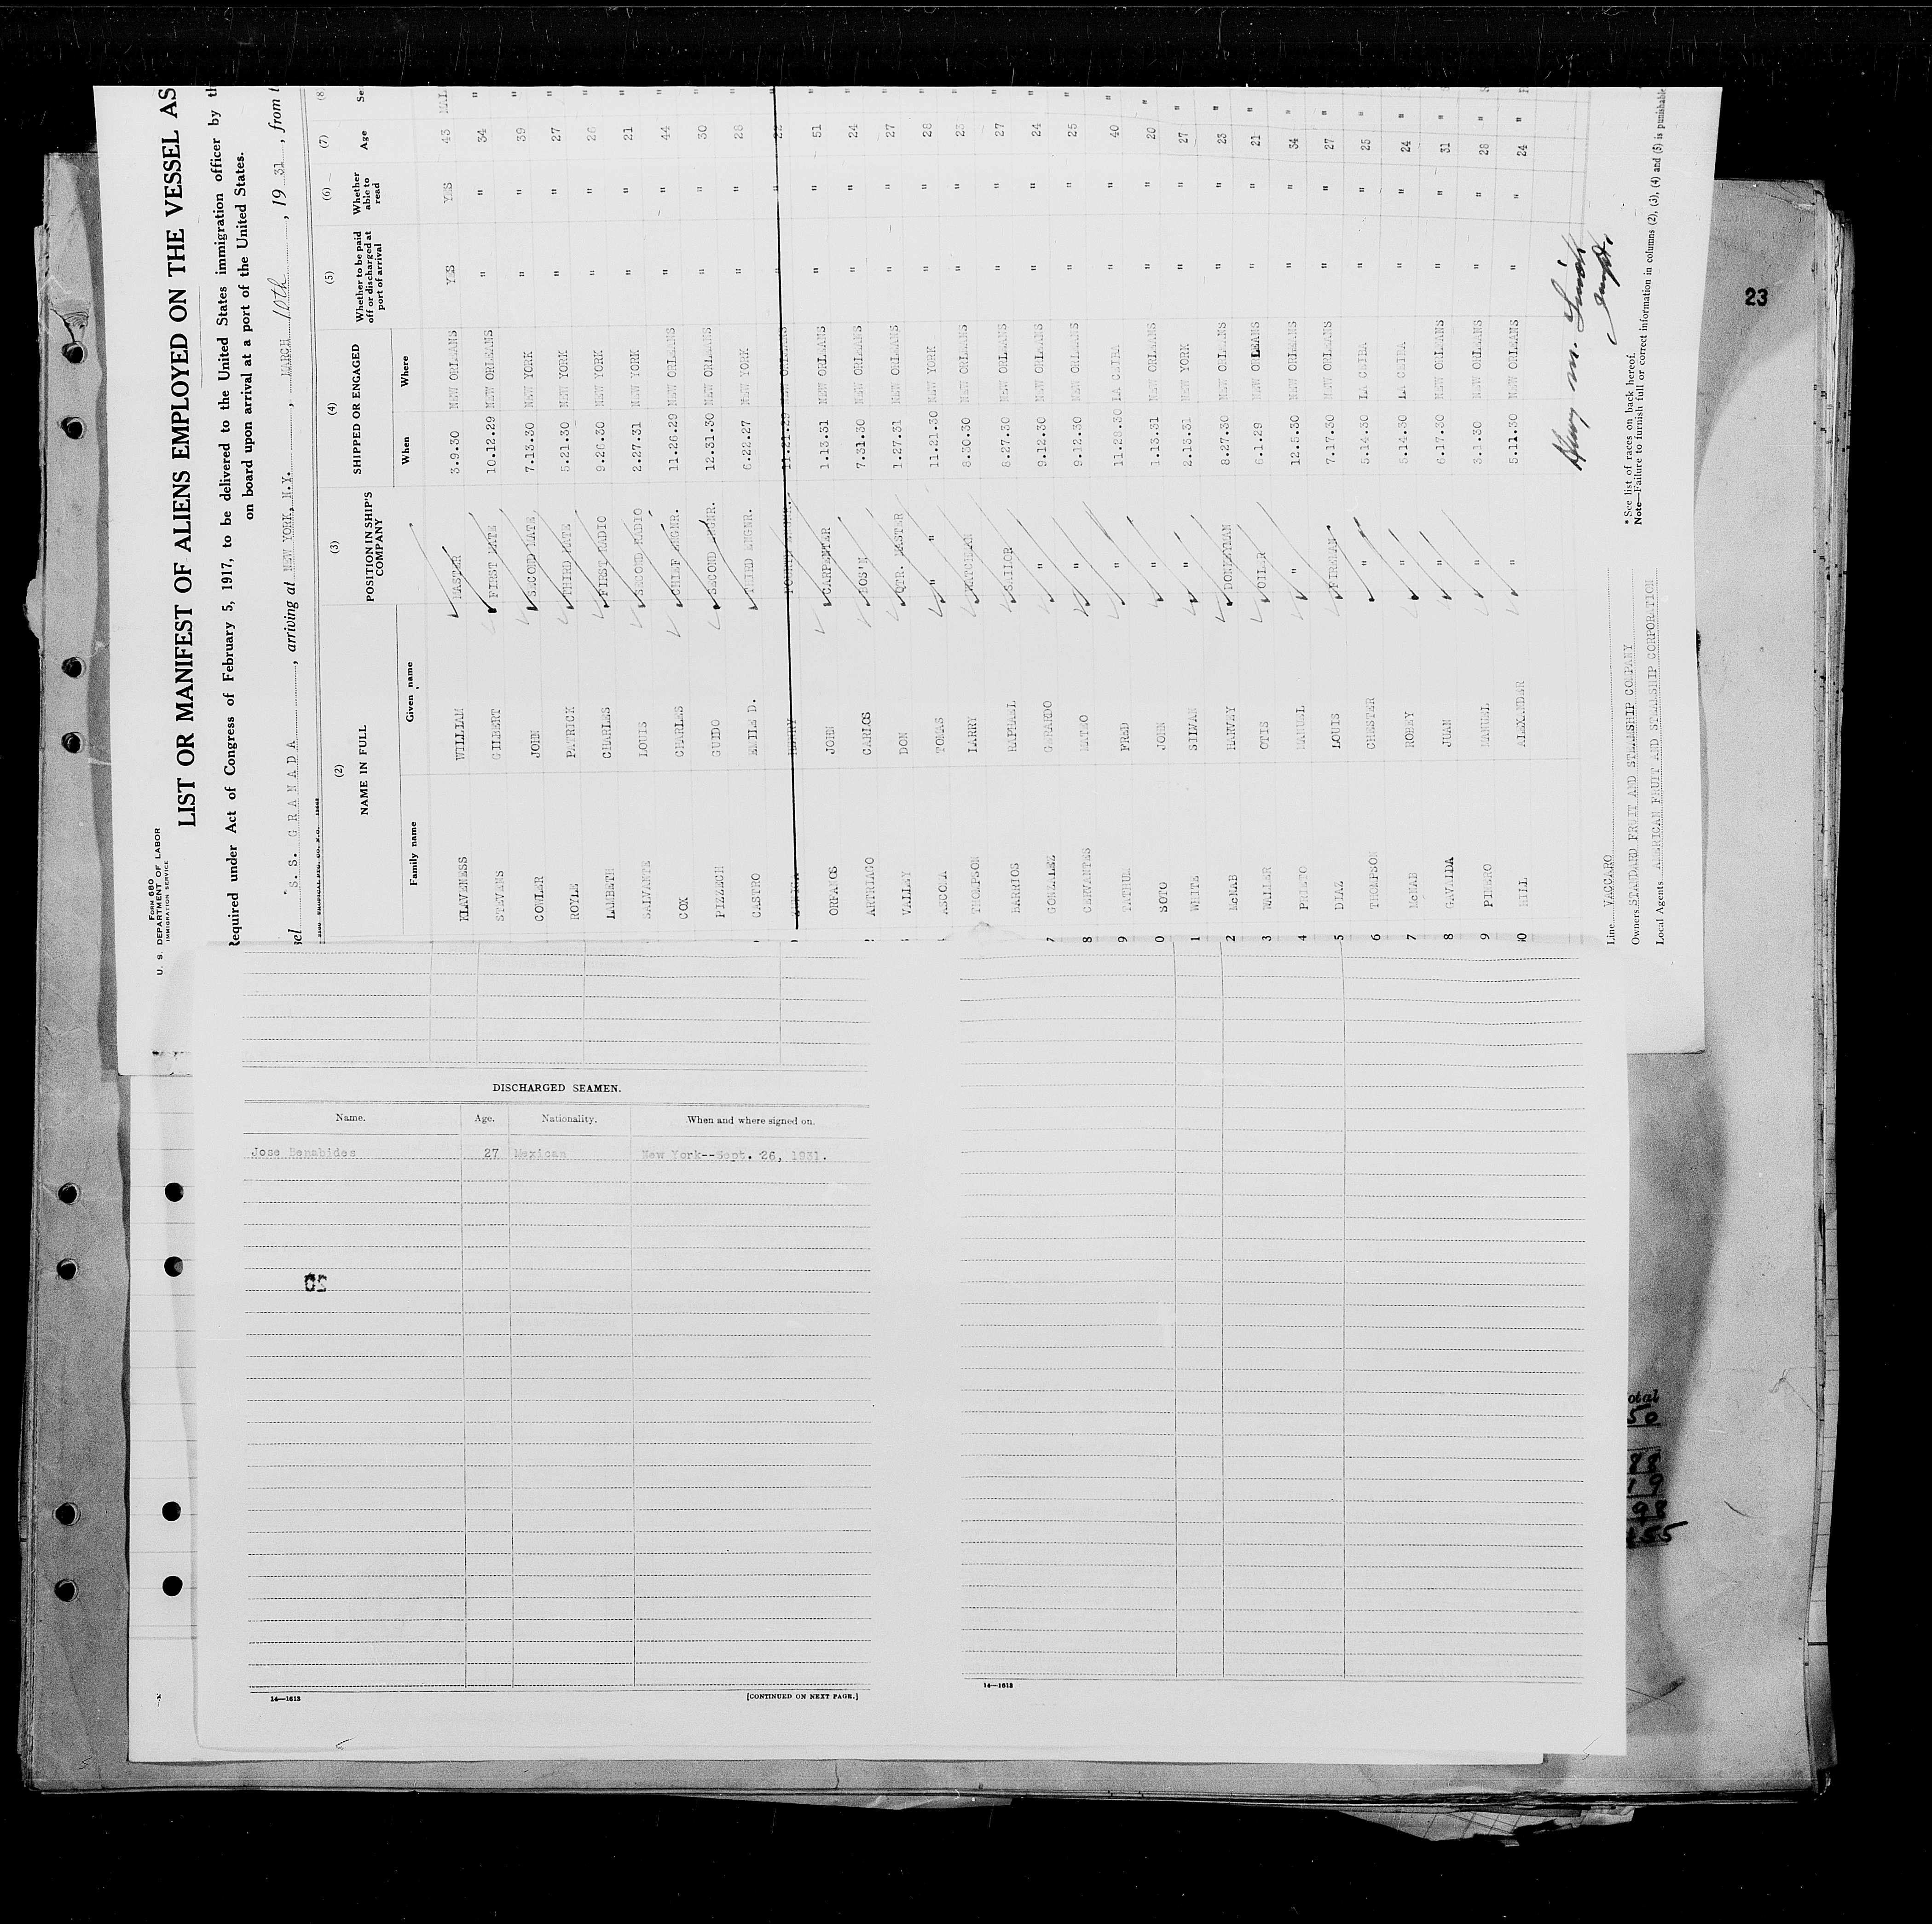 FORM 680
U. S. DEPARTMENT OF LABOR
IMMIGRATION SERVICE
LIST OR MANIFEST OF ALIENS EMPLOYED ON THE VESSEL AS
Required under Act of Congress of February 5, 1917, to be delivered to the United States immigration officer by th
on board upon arrival at a port of the United States.
sel S. S. GRANADA, arriving at NEW YORK, N.Y., MARCH 10th, 19 31, from t
(2) (3) (4) (5) (6) (7) (8
NAME IN FULL POSITION IN SHIP'S COMPANY SHIPPED OR ENGAGED Whether to be paid off or discharged at port of arrival Whether able to read Age Se
Family name Given name When Where
KLAVENESS WILLIAM MASTER 3.9.30 NEW ORLEANS YES YES 43 MAL
STEVENS GILBERT FIRST MATE 10.12.29 NEW ORLEANS " " 34 "
COWLER JOHN SECOND MATE 7.13.30 NEW YORK " " 39 "
ROYLE PATRICK THIRD MATE 5.21.30 NEW YORK " " 27 "
LAMBETH CHARLES FIRST RADIO 9.26.30 NEW YORK " " 26 "
SALVANTE LOUIS SECOND RADIO 2.27.31 NEW YORK " " 21 "
COX CHARLES CHIEF ENGNR. 11.26.29 NEW ORLEANS " " 44 "
PIZZECH GUIDO SECOND ENGNR. 12.31.30 NEW ORLEANS " " 30 "
CASTRO EMILE D. THIRD ENGNR. 6.22.27 NEW YORK " " 28 "
11.21.29 NEW ORLEANS " " 22 "
ORFANOS JOHN CARPENTER 1.13.31 NEW ORLEANS " " 51 "
2 ARTRIAGO CARLOS BOS'N 7.31.30 NEW ORLEANS " " 24 "
VALLEY DON QTR. MASTER 1.27.31 NEW ORLEANS " " 27 "
ASCONA TOMAS " " 11.21.30 NEW YORK " " 28 "
THOMPSON LARRY WATCHMAN 8.30.30 NEW ORLEANS " " 23 "
BARRIOS RAPHAEL SAILOR 8.27.30 NEW ORLEANS " " 27 "
7 GONZALEZ GERARDO " 9.12.30 NEW ORLEANS " " 24 "
8 CERVANTES MATEO " 9.12.30 NEW ORLEANS " " 25 "
9 TATHUM FRED " 11.28.30 LA CEIBA " " 40 "
0 SOTO JOHN " 1.13.31 NEW ORLEANS " " 20 "
1 WHITE SILVAN " 2.13.31 NEW YORK " " 27 "
2 McNAB HARVEY DONKEYMAN 8.27.30 NEW ORLEANS " " 23 "
3 WALLER OTIS OILER 6.1.29 NEW ORLEANS " " 21 "
4 PRIETO MANUEL " 12.5.30 NEW ORLEANS " " 34 "
5 DIAZ LOUIS FIREMAN 7.17.30 NEW ORLEANS " " 27 "
6 THOMPSON CHESTER " 5.14.30 LA CEIBA " " 25 "
7 McNAB ROBEY " 5.14.30 LA CEIBA " " 24 "
8 GAVALDA JUAN " 6.17.30 NEW ORLEANS " " 31 "
9 PINERO MANUEL " 3.1.30 NEW ORLEANS " " 28 "
30 HILL ALEXANDER " 5.11.30 NEW ORLEANS " " 24 "
Henry M. Smith
Line VACCARO
Owners STANDARD FRUIT AND STEAMSHIP COMPANY
Local Agents AMERICAN FRUIT AND STEAMSHIP CORPORATION
* See list of races on back hereof.
Note—Failure to furnish full or correct information in columns (2), (3), (4) and (5) is punishable
23
DISCHARGED SEAMEN.
Name. Age. Nationality. When and where signed on.
Jose Benabides 27 Mexican New York--Sept. 26, 1931.
14—1613
[CONTINUED ON NEXT PAGE.]
14—1613
otal
50